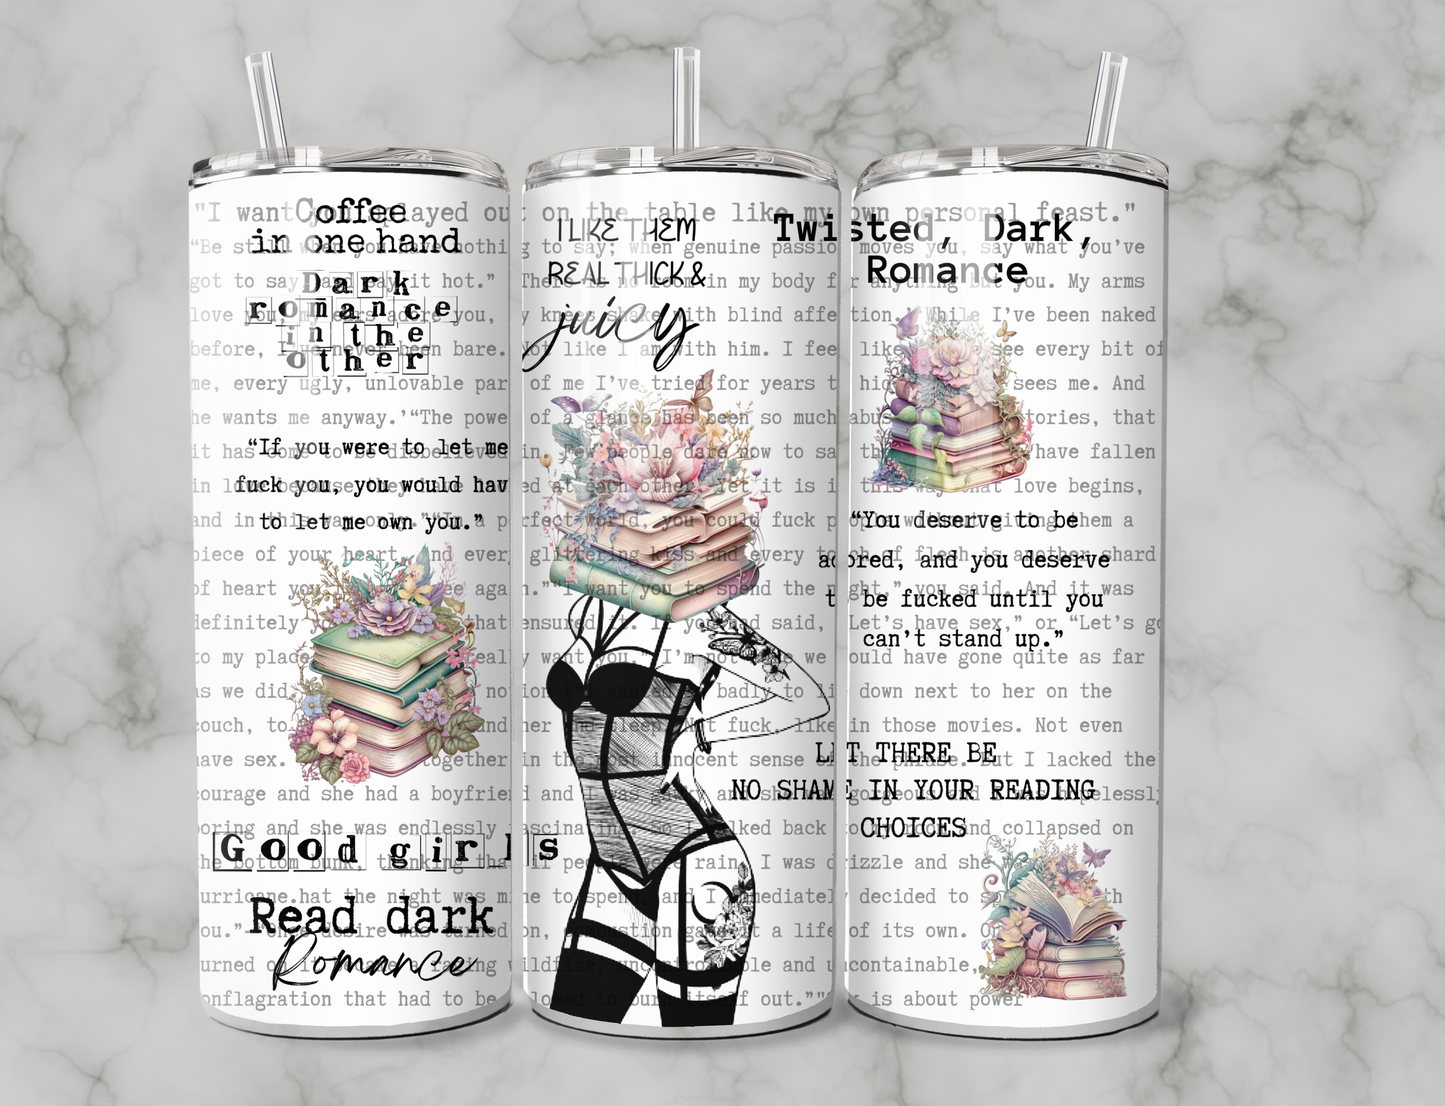 Coffee
in one hand
Dark
romance
in the
other
"If you were to let me
fuck you, you would hav
to let me own you."
Good girls
Read dark
Romance
I LIKE THEM
REAL THICK &
juicy
Twisted, Dark,
Romance
"You deserve to be
adored, and you deserve
to be fucked until you
can't stand up."
LET THERE BE
NO SHAME IN YOUR READING
CHOICES
"I want you played out on the table like my own personal feast."
"Be still when you have nothing to say; when genuine passion moves you, say what you've
got to say, and say it hot." "There is no room in my body for anything but you. My arms
love you, my ears adore you, my knees shake with blind affection. While I've been naked
before, I've never been bare. Not like I am with him. I feel like see every bit of
me, every ugly, unlovable part of me I've tried for years to hide sees me. And
he wants me anyway.'"The power of a glance has been so much abused stories, that
it has come to be disbelieved in. Few people dare now to say have fallen
in love because they have looked at each other. Yet it is in this way that love begins,
and in this way only." "In a perfect world, you could fuck people without giving them a
piece of your heart. And every glittering kiss and every touch of flesh is another shard
of heart you see again." "I want you to spend the night," you said. And it was
definitely that ensured it. If you had said, "Let's have sex," or "Let's go
to my place really want you. I'm not sure we would have gone quite as far
as we did. notion I wanted so badly to lie down next to her on the
couch, to and sleep. Not fuck, like in those movies. Not even
have sex. together in the most innocent sense of the phrase. But I lacked the
courage and she had a boyfriend and I was gawky and she was gorgeous and I was hopelessly
boring and she was endlessly fascinating. So I walked back to my room and collapsed on
the bottom bunk, thinking that if people were rain, I was drizzle and she
hurricane.hat the night was mine to spend, and I immediately decided to
you."" Once desire was turned on, combustion gave it a life of its own.
turned a raging wildfire, uncontrollable and uncontainable,
conflagration that had to be allowed to burn itself out."" is about power"